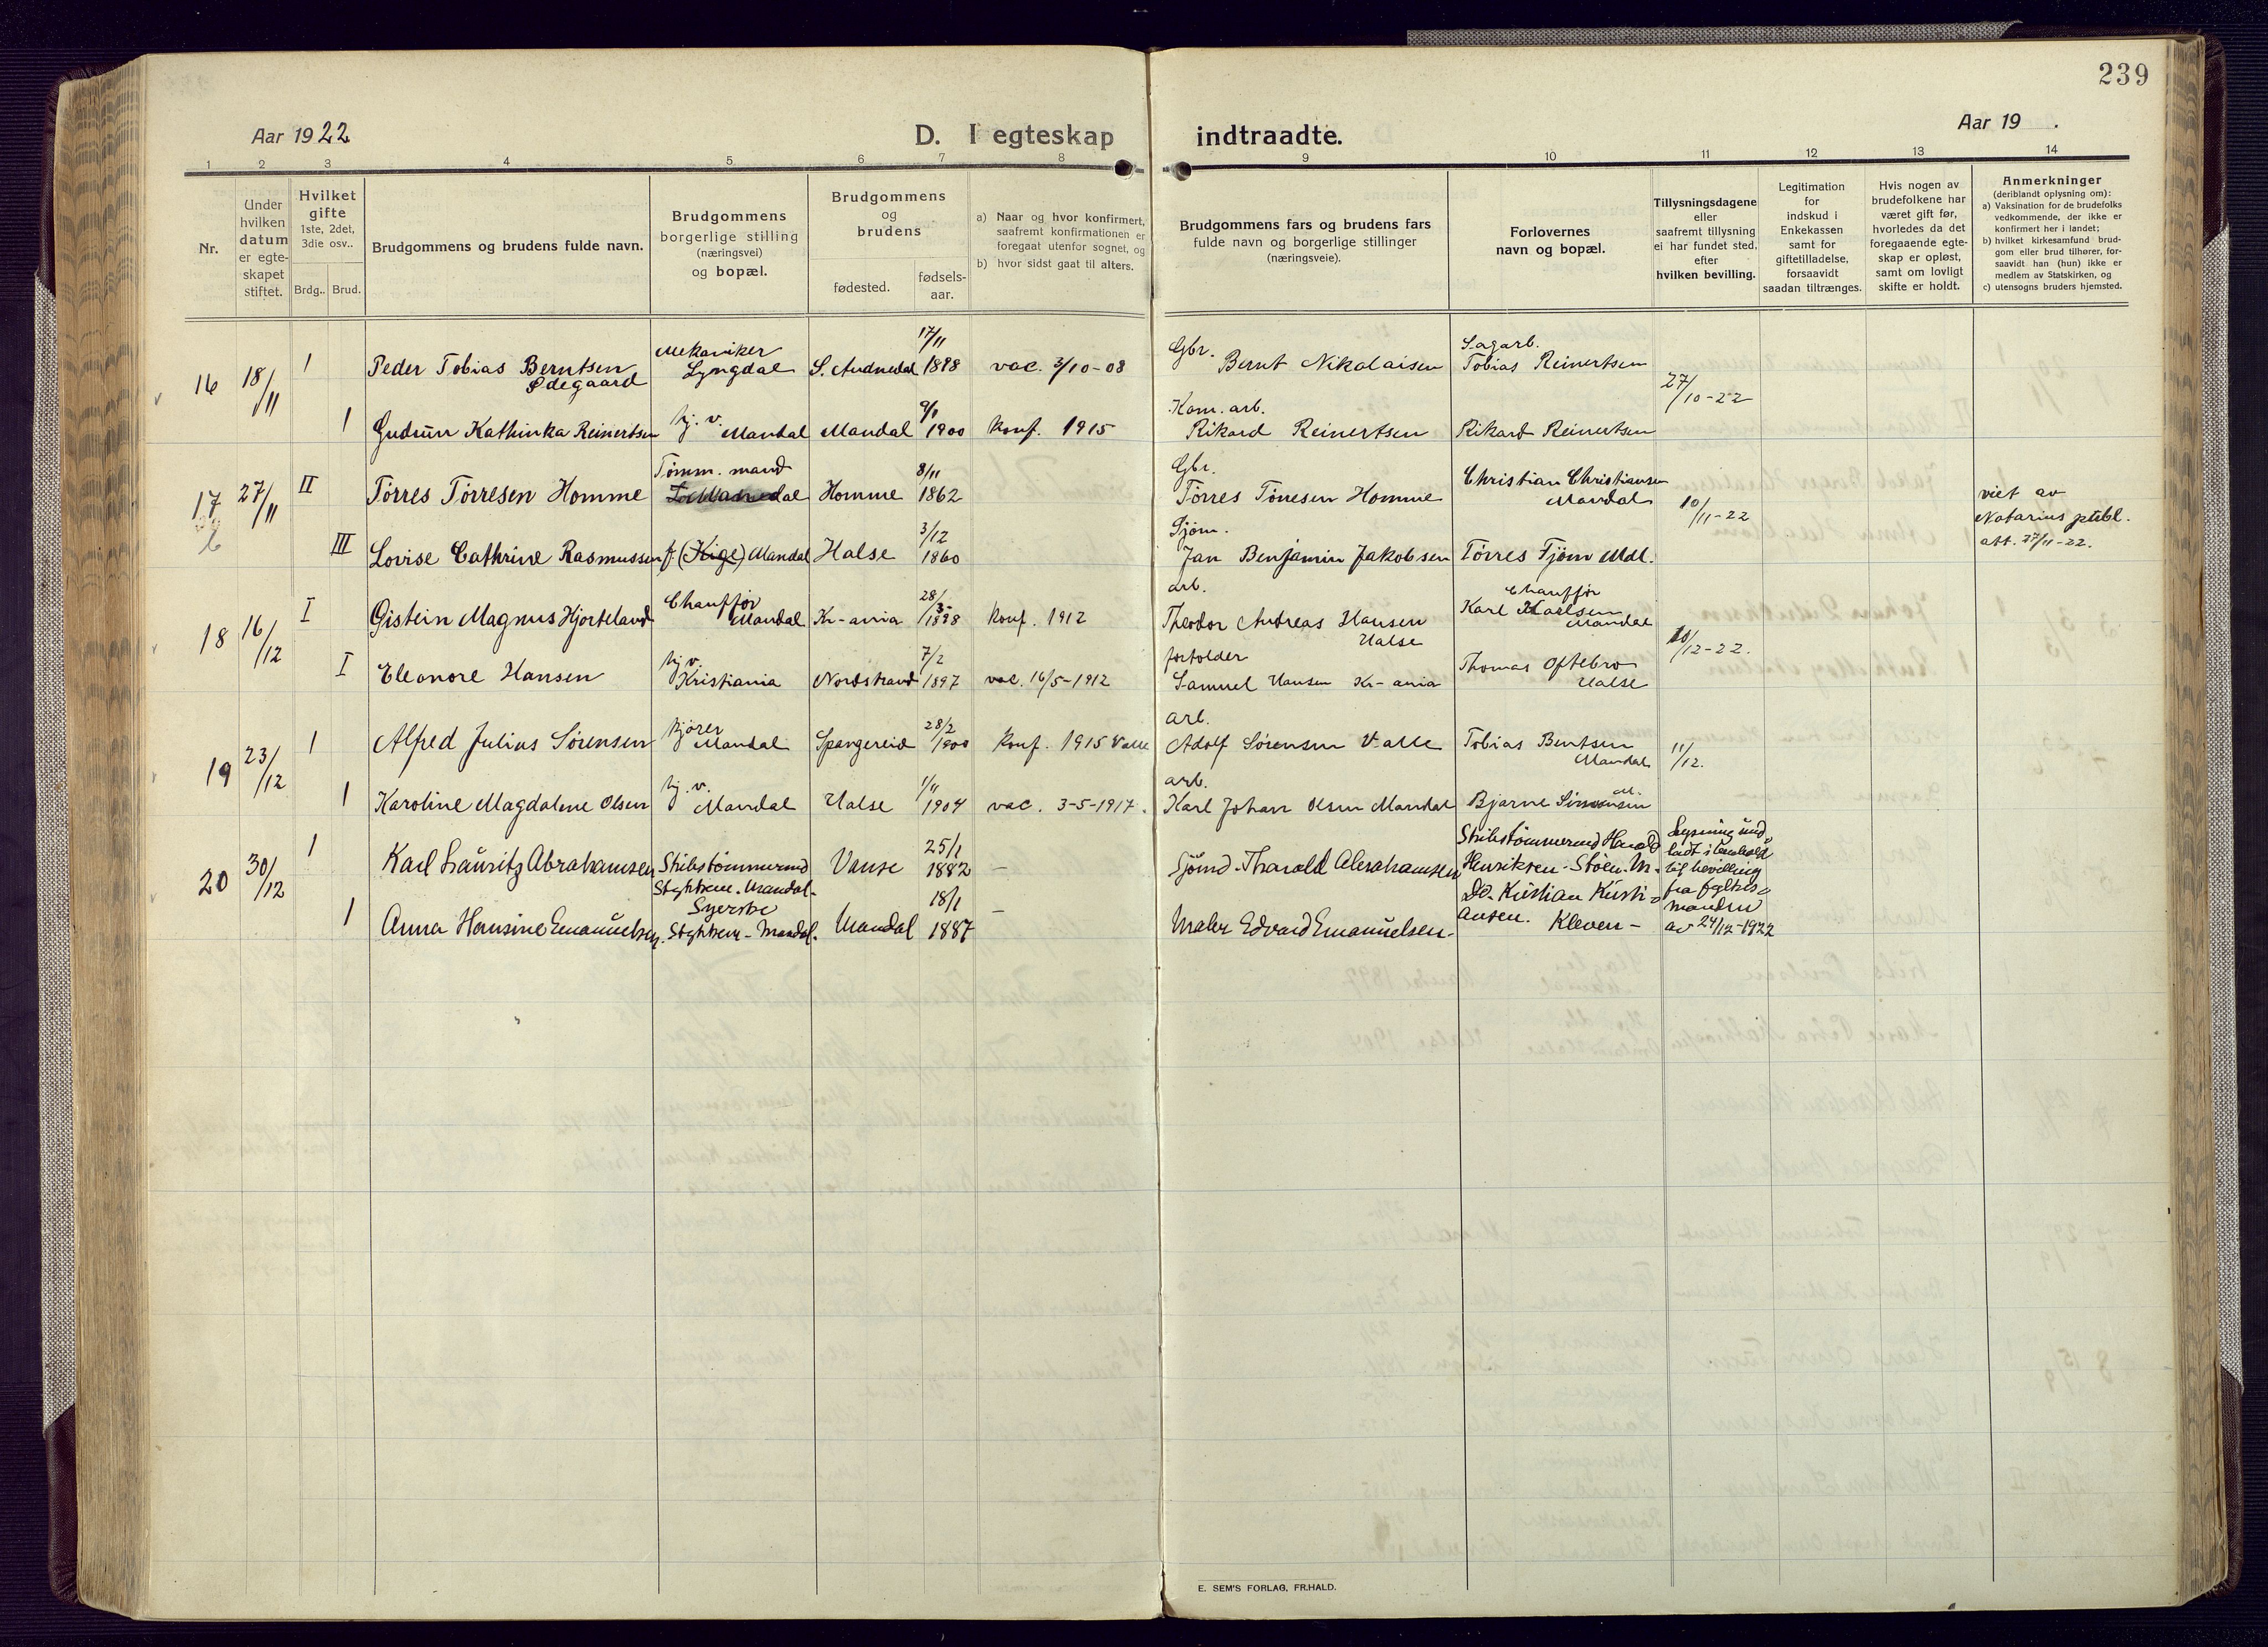 239
Aar 1922
D. I egteskap
indtraadte.
Aar 19 .
1 2 3 4 5 6 7 8 9 10 11 12 13 14
Nr.
Under
hvilken
datum
er egte-
skapet
stiftet.
Hvilket
gifte
1ste, 2det,
3die osv..
Brdg..
Brud.
Brudgommens og brudens fulde navn.
Brudgommens
borgerlige stilling
(næringsvei)
og bopæl.
Brudgommens
og
brudens
fødested.
fødsels-
aar.
a) Naar og hvor konfirmert,
saafremt konfirmationen er
foregaat utenfor sognet, og
b) hvor sidst gaat til alters.
Brudgommens fars og brudens fars
fulde navn og borgerlige stillinger
(næringsveie).
Forlovernes
navn og bopæl.
Tillysningsdagene
eller
saafremt tillysning
ei har fundet sted,
efter
hvilken bevilling.
Legitimation
for
indskud i
Enkekassen
samt for
giftetilladelse,
forsaavidt
saadan tiltrænges.
Hvis nogen av
brudefolkene har
været gift før,
hvorledes da det
foregaaende egte-
skap er opløst,
samt om lovligt
skifte er holdt.
Anmerkninger
(deriblandt oplysning om):
a) Vaksination for de brudefolks
vedkommende, der ikke er
konfirmert her i landet;
b) hvilket kirkesamfund brud-
gom eller brud tilhører, for-
saavidt han (hun) ikke er
medlem av Statskirken, og
c) utensogns bruders hjemsted.
16 18/11 1 Peder Tobias Berntsen
Ødegaard
Mekaniker
Lyngdal
S. Audnedal
17/11
1898
vac. 3/10-08
Gbr. Bernt Nikolaisen
Sagarb.
Tobias Reinertsen
27/10-22
1 Gudrun Kathinka Reinertsen
hj. v. Mandal
Mandal
9/1
1900
konf. 1915
Kom. arb.
Rikard Reinertsen
Rikard Reinertsen
17 27/11 II Tørres Tørresen Homme
Tømm. mand
Homme
8/11
1862
Gbr.
Tørres Tørresen Homme
Christian Christiansen
Mandal
10/11-22
viet av
Notarius publ.
att. 27/11-22.
III Lovise Cathrine Rasmussen
f (Kige) Mandal
Halse
3/12
1860
Sjøm.
Jan Benjamin Jakobsen
Tørres Tjøm Mdl.
18 16/12 I Gistein Magnus Hjorteland
Chauffør
Mandal
Kr-ania
28/3
1898
konf. 1912
arb.
Theodor Andreas Hansen
Halse
Chauffør
Karl Karlsen
Mandal
10/12-22.
I Eleonore Hansen
hj v.
Kristiania
Nordstrand
7/2
1897
vac. 16/5-1912
forholder
Samuel Hansen Kr-ania
Thomas Oftebro
Halse
19 23/12 1 Alfred Julius Sørensen
kjører
Mandal
Spangereid
28/2
1900
konf. 1915 Valle
arb.
Adolf Sørensen Valle
Tobias Bentsen
Mandal
11/12.
1 Karoline Magdalene Olsen
hj. v.
Mandal
Halse
1/11
1904
vac. 3-5-1917.
arb.
Karl Johan Olsen Mandal
Bjarne Simonsen
20 30/12 1 Karl Lauritz Abrahamsen
Skibstømmermd
Mandal.
Vanse
25/1
1882
—
Sjømd. Tharald Abrahamsen
Skibstømmermd Harald
Henriksen - Støen. M.
Lysning und-
ladt i henhold
til bevilling
fra fylkes-
manden
av 24/12-1922
1 Anna Hansine Emanuelsen.
Syerske
Mandal.
Mandal
18/1
1887
—
Maler Edvard Emanuelsen.
Do. Kristian Kristi-
ansen. Kleven -
E. SEM'S FORLAG, FR.HALD.